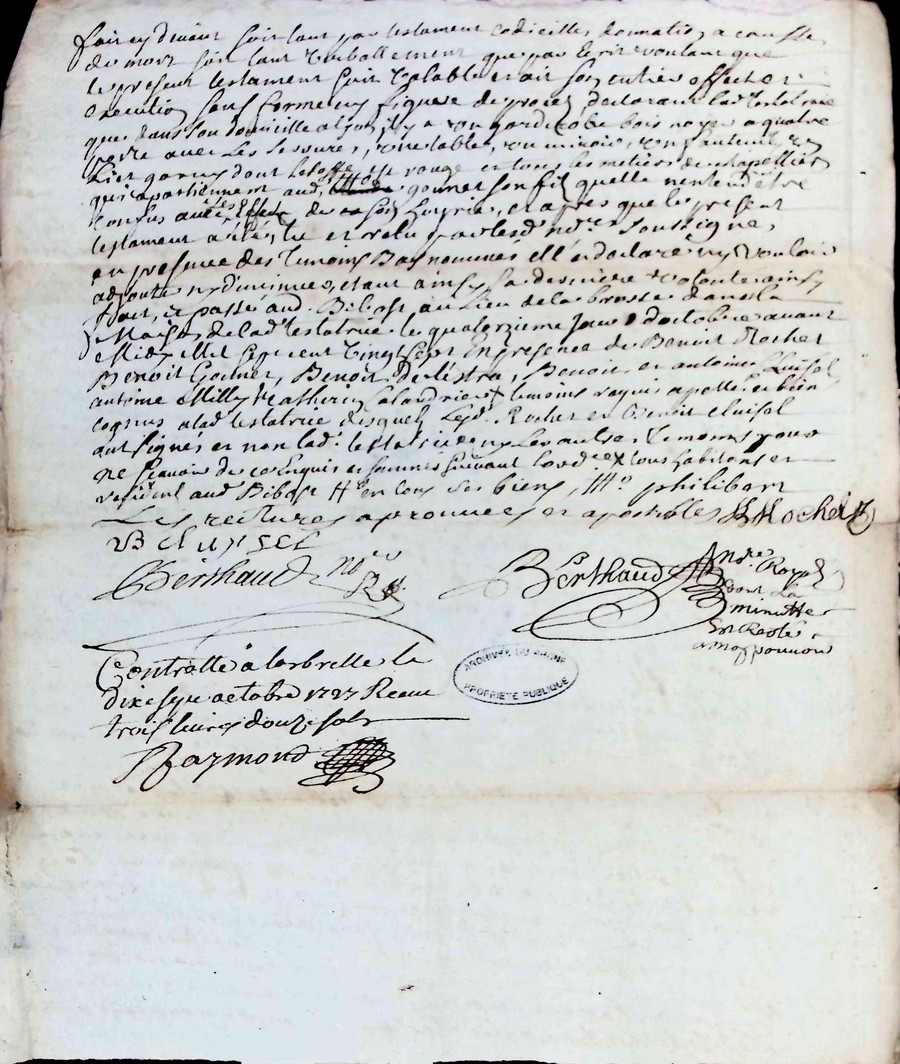 fait cy devant soit tant par testament codicille donnation a cause de
de mort soit tant verballement que par écrit voulant que
le present testament soit valable et ait son entier effect et
execution sans forme ny figure de proces, declarant lad. testatrice
que dans son domicille a y a un garderobe bois noyer a quatre
porte avec les serrures, une table, un miroir, un fauteuil, un
lict garny dont l'etoffe est rouge et tous les metiers de chapellier
qui apartiennent aud. gonnet son fils quelle n'entend être
confus avec les effets de sa et apres que le present
testament a eté leu et releu par led. nore soussigné,
en presence des temoins bas nommés elle a declaré n'y vouloir
adjouter ny diminuer, etant ainsy sa derniere volonté ainsy
fait, et passé aud. Bibost, au lieu de la brosse dans la
maison de lad. testatrice le quatorzieme jour d'octobre avant
midy mil sept cent vingt sept En presence de Benoit Rochet
Benoit Benoit Delestra, Benoit et antoine Cluisel
antoine Milly et Calandrier temoins requis apellés et bien
cognus a lad. testatrice desquels led. Rochet et Benoit Cluisel
ont signés et non lad. testatrice ny les autres temoins pour
ne sçavoir de ce enquis et sommés suivant l'ord.ce tous habitans et
resident aud. Bibost en tous ses biens, philibert
Les ratures aprouvées et apostilles B Rochet
B Cluysel
Berthaud nore Rl
Berthaud nore Royal
dont la
minutte
Est Resté
a mon pouvoir
ARCHIVES DU RHÔNE
PROPRIÉTÉ PUBLIQUE
Controllé a larbrelle le
dixesept octobre 1727 Receu
trois livres douze sols
Raymond